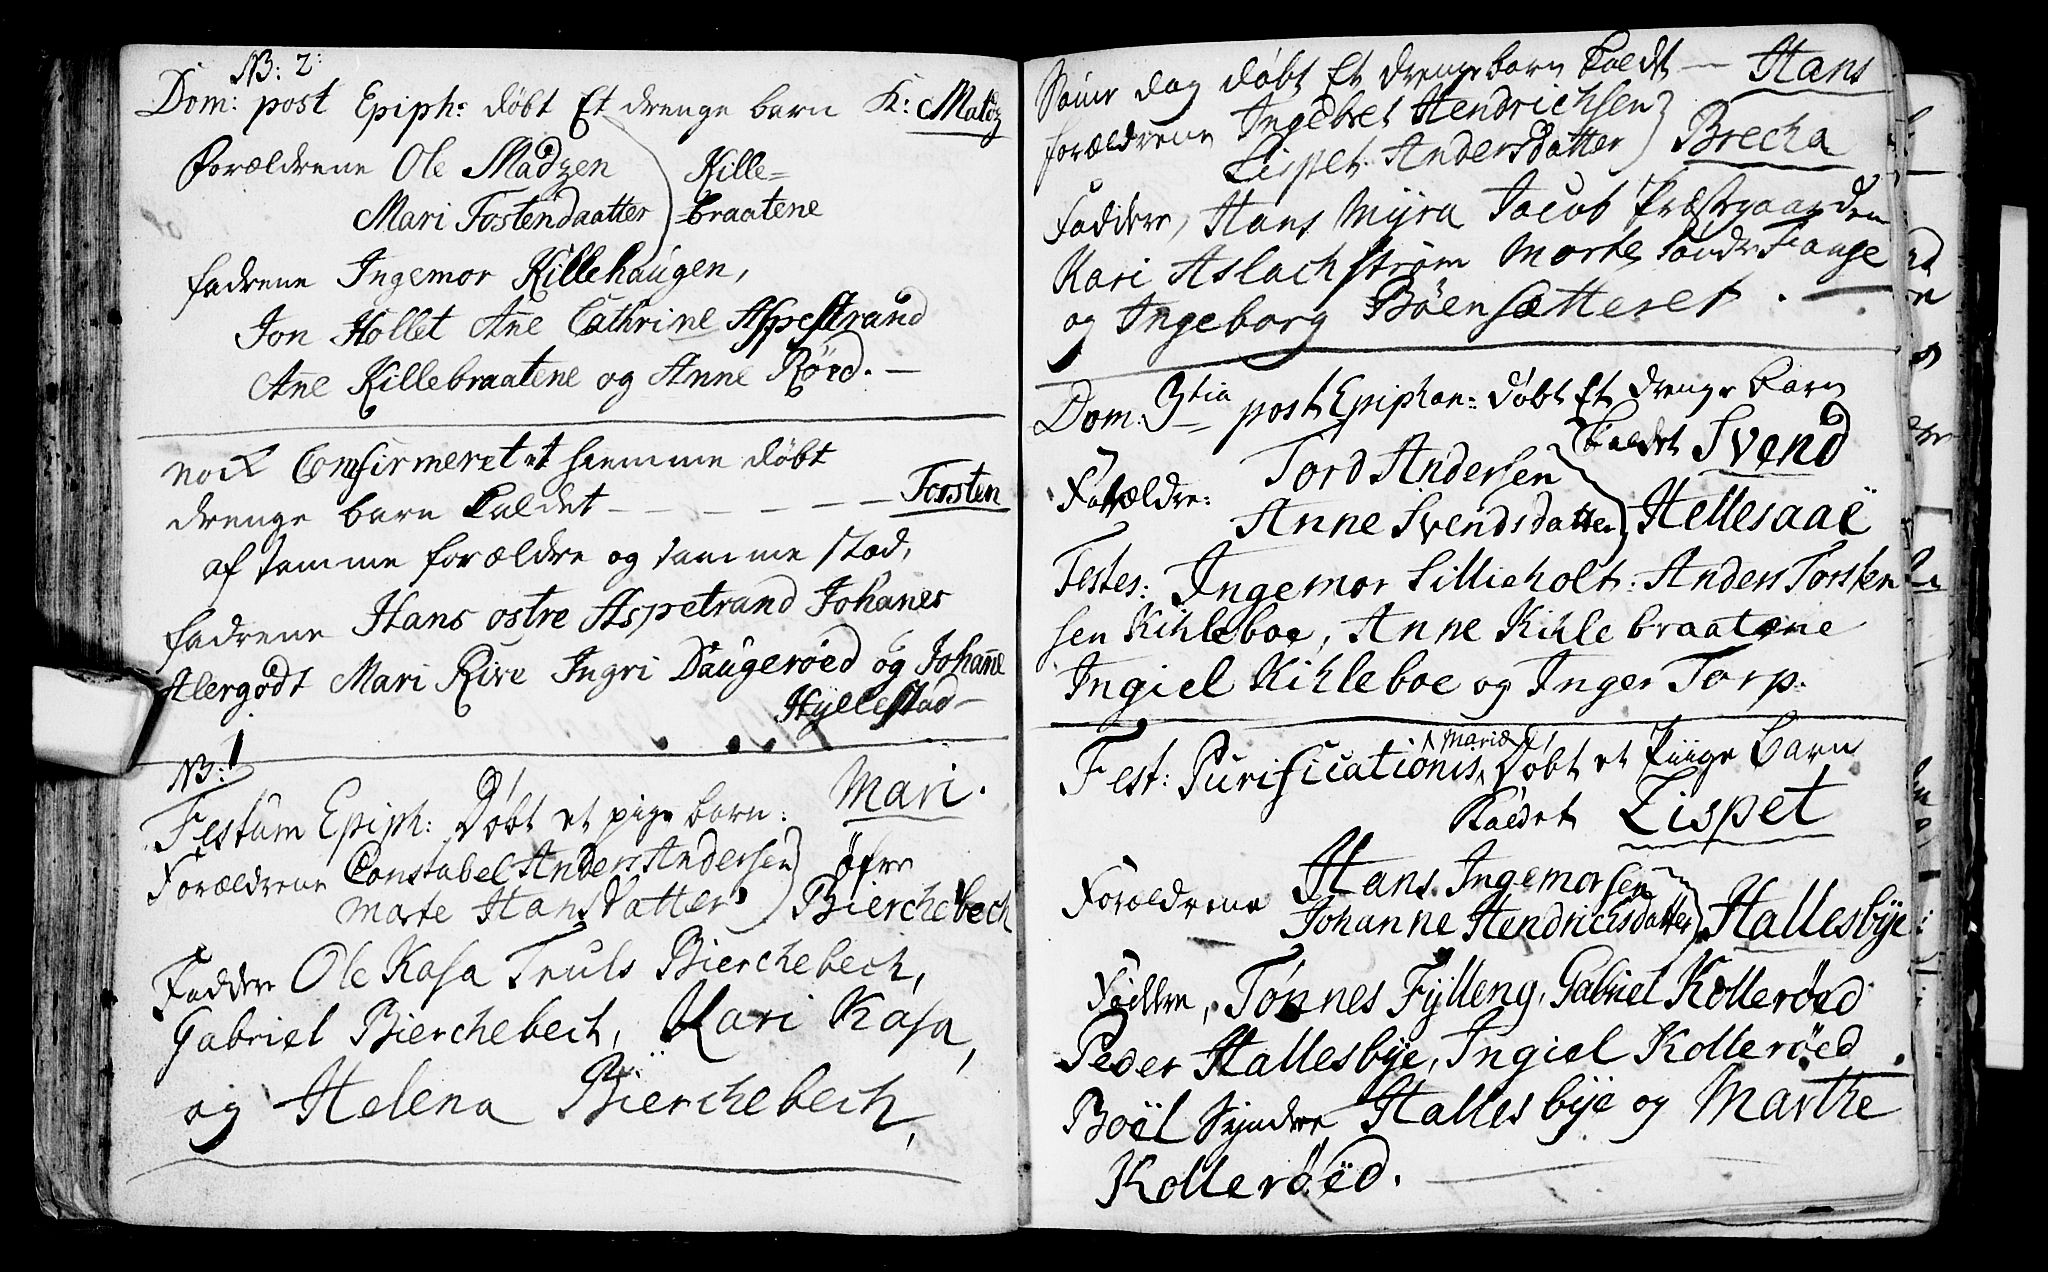 NB: 2:
Dom: post Epiph: døbt Et drenge barn K: Madtz
Forældrene Ole Madzen Kille=
Mari Tostendaatter braatene
fadrene Ingemor Killehaugen,
Jon Hollet Ane Cathrine Aspestrand
Ane Killebraatene og Anne Röed. —
nock Confirmeret et hiemme døbt
drenge barn kaldet — — — — — — Torsten
af samme forældre og samme stad,
fadrene Hans ostre Aspestrand Johanes
Alergodt Mari Rive Ingri Daugerøed og Johane
Hyllestad —
NB: 1
Festum Epiph: Døbt et pige barn: Mari.
Forældrene Constabel Anders Andersen öfre
Marte HansDatter Bierchebech
Faddere Ole Kasa Truls Bierchebech,
Gabriel Bierchebech, Kari Kasa,
og Helena Bierchebech,
Same dag døbt Et drenge barn kaldt — Hans
forældrene Ingebret Hendrichsen
Lispet Andersdatter Brecha
Faddere, Hans Myra Jacob Præstgaarden
Kari Aslachstrøm Morten Søndr Fange
og Ingeborg Böensætteret. —
Dom: 3tia post Epiphan: døbt Et drenge barn
kaldet Svend
Forældre: Tord Andersen
Anne Svendsdatter Hellesaaë
Testes: Ingemor Lillieholt: Anders Torsten
sen Kihleboe, Anne Kihlebraatene
Ingiel Kihleboe og Inger Torp.
Fest: Purificationis Mariæ, Døbt et Piige barn
Kaldet Lispet
Forældrene Hans Ingemorsen
Johanne Hendrichsdatter Hallesbÿe
Faddere, Tönnes Fÿlleng, Gabriel Kollerøed
Peder Hallesbÿe, Ingiel Kollerøed
Boël Syndre Hallesbÿe og Marthe
Kollerøëd.